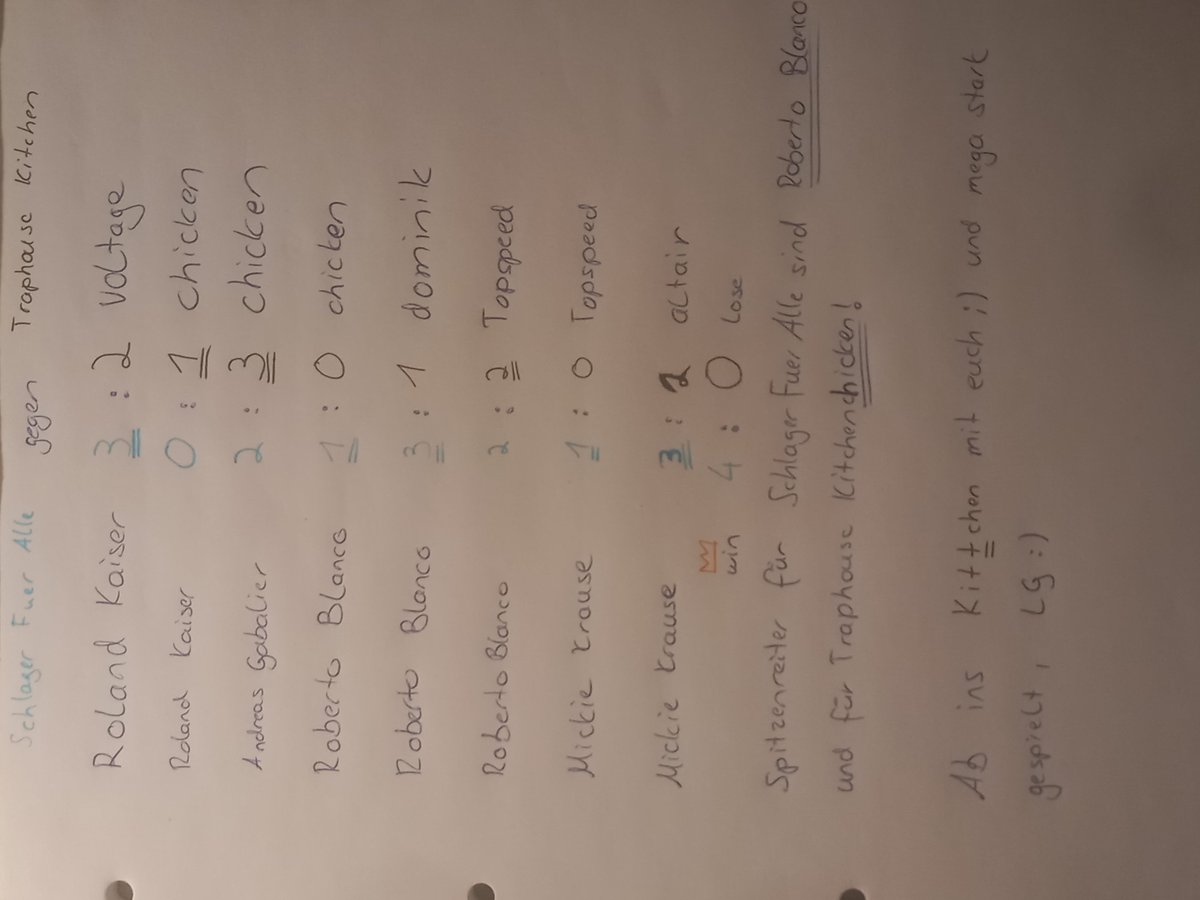 Schlager Fuer Alle gegen Traphouse Kitchen
Roland Kaiser 3 : 2 Voltage
Roland Kaiser 0 : 1 chicken
Andreas Gabalier 2 : 3 chicken
Roberto Blanco 1 : 0 chicken
Roberto Blanco 3 : 1 dominik
Roberto Blanco 2 : 2 Topspeed
Mickie Krause 1 : 0 Topspeed
Mickie Krause 3 : 2 altair
win 4 : 0 Lose
Spitzenreiter für Schlager Fuer Alle sind Roberto Blanco
und für Traphouse Kitchenchicken!
Ab ins Kittchen mit euch ;) und mega stark
gespielt, LG :)